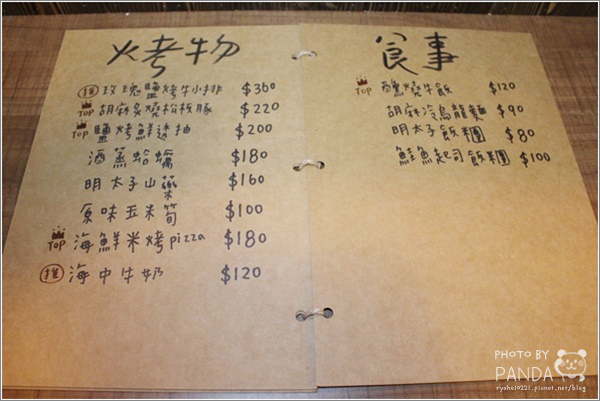 火烤物
推 玫瑰鹽烤牛小排 $360
TOP 胡麻炙燒松板豚 $220
TOP 鹽烤鮮透抽 $200
酒蒸蛤蠣 $180
明太子山藥 $160
原味玉米筍 $100
TOP 海鮮米烤pizza $180
推 海中牛奶 $120
食事
TOP 燒牛飯 $120
胡麻冷烏龍麵 $90
明太子飯糰 $80
鮭魚起司飯糰 $100
PHOTO BY
PANDA
ryohei0221.pixnet.net/blog